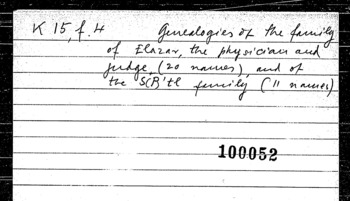 K 15, f. 4 Genealogies of the family
of Elazar, the physician and
judge, (20 names), and of
the S(B)'tl family (11 names)
100052